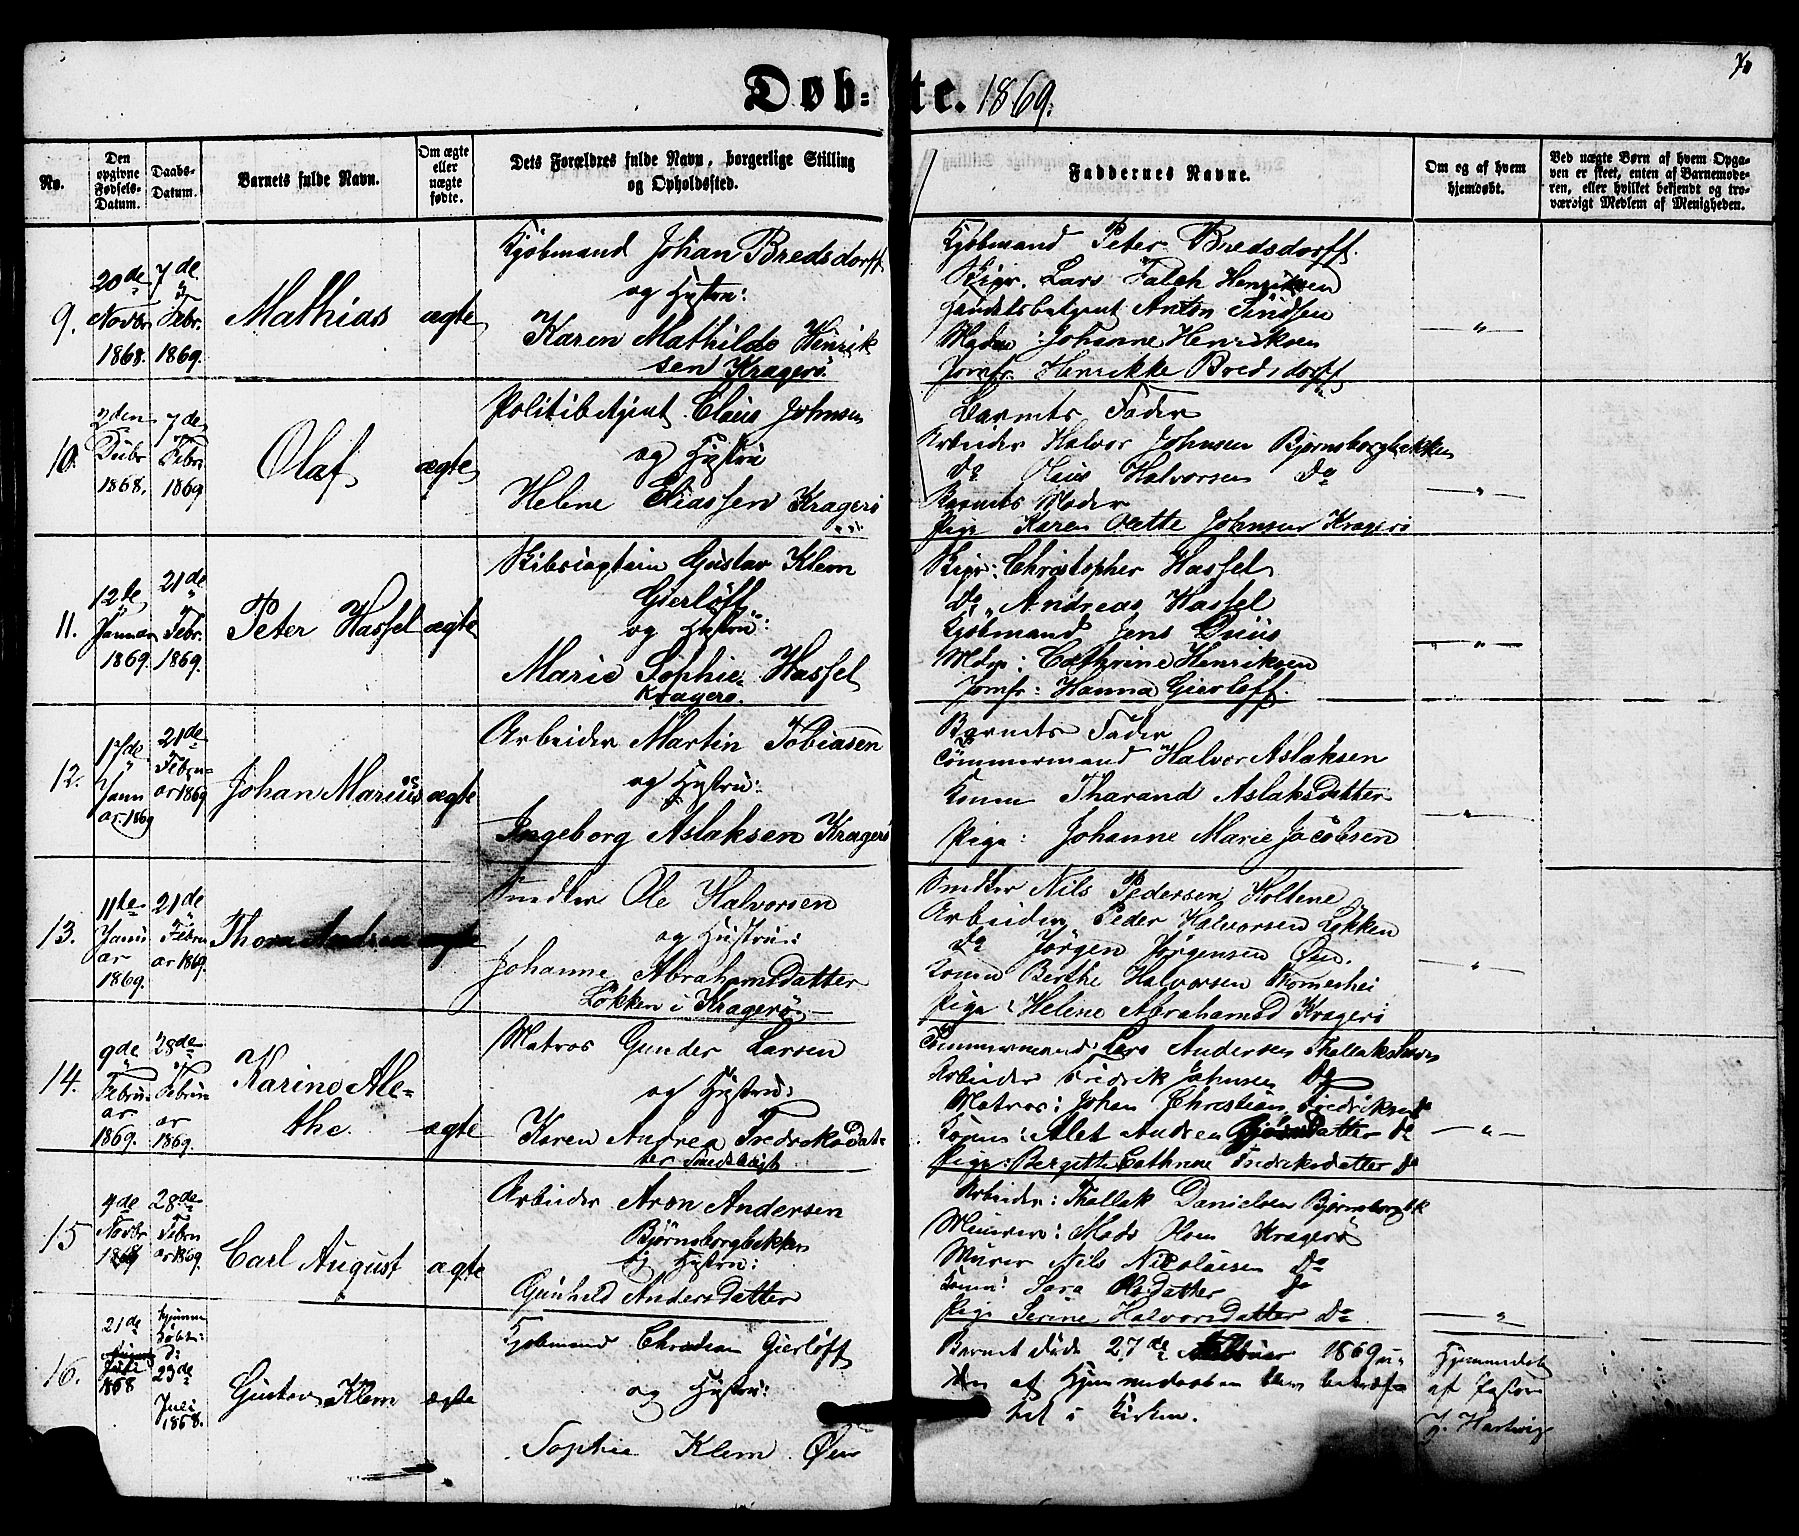 Døb-te. 1869.
No.
Den opgivne Fødsels-Datum.
Daabs-Datum.
Barnets fulde Navn.
Om ægte eller uægte fødte.
Dets Forældres fulde Navn, borgerlige Stilling og Opholdssted.
Faddernes Navne.
Om og af hvem hjemdøbt.
Ved uægte Børn af hvem Opga-
ven er skeet, enten af Barnemode-
ren, eller hvilket bekjendt og tro-
værdigt Medlem af Menigheden.
9.
20de Novbr 1868.
7de Febr. 1869.
Mathias
ægte
Kjøbmand Johan Bredsdorff
og Hustru:
Karen Mathilde Hinrik
sen Kragerö
Kjøbmand Peter Bredsdorff.
Skipr. Lars Falch Henriksen
Handelsbetjent Anton
Madm: Johanne Henriksen
Jomfr. Henrikke Bredsdorff
— " —
10.
2den Decbr 1868.
7de Febr 1869
Olaf
ægte
Politibetjent Claus Johnsen
og Hustru
Helene Eliassen Kragerö
Barnets Fader
Arbeider Halvor Johnsen Bjørnsborgbækken
Do Claus Halvorsen Do
Barnets Moder
Pige Karen Johnsen Kragerö
— " —
11.
12te Januar 1869.
21de Febr. 1869.
Peter Hassel
ægte
Skibscaptain Gustav Klem
Gierløff
og Hustru:
Marie Sophie Hassel
Kragerö.
Skipr: Christopher Hassel
Do Andreas Hassel
Kjøbmand Jens
Mdm: Cathrine Henriksen
Jomfr: Hanna Gierløff.
— " —
12.
17de Janu ar 1869
21de Febru- ar 1869
Johan Marius
ægte
Arbeider Martin Tobiasen
og Hustru:
Ingeborg Aslaksen Kragerö
Barnets Fader
Tömmermand Halvor Aslaksen
Konen Tharand Aslaksdatter
Pige: Johanne Marie Jacobsen
— " —
13.
11te Janu ar 1869.
21de Febru ar 1869.
Thora Andrea
ægte
Smedker Ole Halvorsen
og Hustru:
Johanne Abrahamsdatter
Løkken i Kragerö
Smedker Nils Pedersen Holtene
Arbeider Peder Halvorsen Løkken
Do Jørgen Jørgensen Øen.
Konen Berthe Halvorsen
Pige: Helene Abrahamsd Kragerö
— " —
14.
9de Febru- ar 1869.
28de Febru ar 1869.
Karine Ale-
the.
ægte
Matros Gunder Larsen
og Hustru:
Karen Andrea Fredriksdat-
ter
Tömmermand: Lars Andersen
Arbeider Fredrik Johnsen Do
Matros: Johan Christian Fredriksen Do
Konen: Alet Andrea Do
Pige: Bergitte Cathrine Fredriksdatter Do
— " —
15
4de Novbr 1868
28de Febru ar 1869.
Carl August
ægte
Arbeider Aron Andersen
Bjørnsborgbekken
og Hustru:
Gunhild Andersdatter
Arbeider: Thollak Danielsen Bjørnsborgbk
Murer: Mads Olsen Kragerö
Murer Nils Nicolaisen Do
Konen: Sara Olsdatter Do
Pige Serine Halvorsdatter Do
— " —
16.
21de Juli 1868
Hjemme døbt d: 23de Juli 1868.
Gustav Klem
ægte
Kjøbmand Christian Gierløff
og Hustru:
Sophie Klem Øen
Barnet døde 27de 1869 u-
den at Hjemmedaaben blev bekræf-
tet i Kirken.
Hjemmedøbt
af Pastor
J. Hartwig